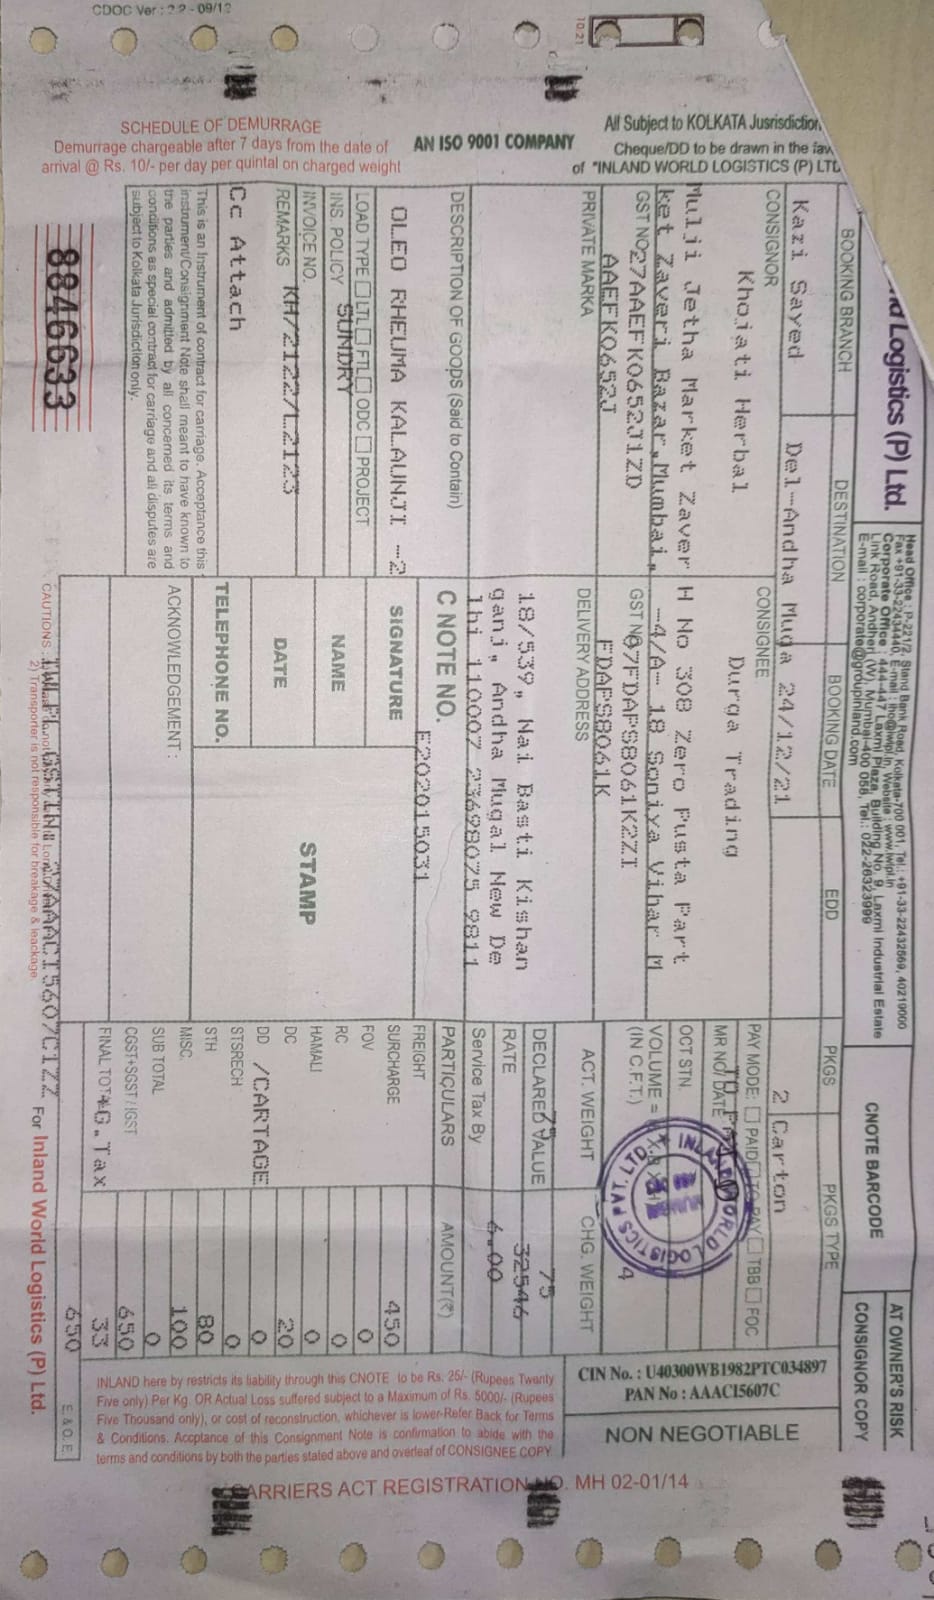 CDOC Ver : 2.2 - 09/12
SCHEDULE OF DEMURRAGE
Demurrage chargeable after 7 days from the date of
arrival @ Rs. 10/- per day per quintal on charged weight
AN ISO 9001 COMPANY
All Subject to KOLKATA Jusrisdiction
Cheque/DD to be drawn in the fav
of "INLAND WORLD LOGISTICS (P) LTD
Logistics (P) Ltd.
Head Office : P-221/2, Stand Bank Road, Kolkata-700 001, Tel.: +91-33-22432569, 40219000
Fax +91-33-22434440, E-mail : iho@iwlpl.in, Website : www.iwlpl.in
Corporate Office : 444-447 Laxmi Plaza, Building No. 9, Laxmi Industrial Estate
Link Road, Andheri (W), Mumbai-400 058, Tel.: 022-26323999
E-mail : corporate@groupinland.com
CNOTE BARCODE
AT OWNER'S RISK
CONSIGNOR COPY
BOOKING BRANCH
DESTINATION
BOOKING DATE
EDD
PKGS
PKGS TYPE
Kazi Sayed
Del-Andha Muga
24/12/21
2
Carton
CONSIGNOR
Khojati Herbal
Mulji Jetha Market Zaver
ket Zaveri Bazar,Mumbai,
GST NO 27AAEFK0652J1ZD
AAEFK0652J
CONSIGNEE
Durga Trading
H No 308 Zero Pusta Part
-4/A- 18 Soniya Vihar M
GST NO 07FDAPS8061K2ZI
FDAPS8061K
PAY MODE: PAID TO PAY TBB FOC
MR NO/ DATE
OCT STN.
VOLUME =
(IN C.F.T.)
INLAND WORLD LOGISTICS PVT. LTD.
MUMBAI
4
CIN No. : U40300WB1982PTC034897
PAN No : AAACI5607C
NON NEGOTIABLE
PRIVATE MARKA
DELIVERY ADDRESS
18/539, Nai Basti Kishan
ganj, Andha Mugal New De
lhi 110007 23698075 9811
ACT. WEIGHT
CHG. WEIGHT
75
75
DECLARED VALUE
32546
RATE
6.00
Service Tax By
DESCRIPTION OF GOODS (Said to Contain)
OLEO RHEUMA KALAUNJI -2
C NOTE NO.
E202015031
PARTICULARS
AMOUNT(₹)
FREIGHT
450
SURCHARGE
0
FOV
0
RC
0
HAMALI
20
DC
0
DD /CARTAGE
0
STSRECH
80
STH
100
MISC.
0
SUB TOTAL
650
CGST+SGST / IGST
33
FINAL TOTAL
+G.Tax
650
E. & O. E.
LOAD TYPE LTL FTL ODC PROJECT
INS. POLICY
SUNDRY
INVOICE NO.
KH/2122/L2123
REMARKS
Cc Attach
SIGNATURE
NAME
DATE
TELEPHONE NO.
STAMP
ACKNOWLEDGEMENT :
This is an Instrument of contract for carriage. Acceptance this
instrument/Consignment Note shall meant to have known to
the parties and admitted by all concerned its terms and
conditions as special contract for carriage and all disputes are
subject to Kolkata Jurisdiction only.
INLAND here by restricts its liability through this CNOTE to be Rs. 25/- (Rupees Twanty
Five only) Per Kg. OR Actual Loss suffered subject to a Maximum of Rs. 5000/- (Rupees
Five Thousand only), or cost of reconstruction, whichever is lower-Refer Back for Terms
& Conditions. Accptance of this Consignment Note is confirmation to abide with the
terms and conditions by both the parties stated above and overleaf of CONSIGNEE COPY
8846633
CAUTIONS :
IWLPL GSTIN: 27AAACI5607C1ZZ
2) Transporter is not responsible for breakage & leackage.
For Inland World Logistics (P) Ltd.
CARRIERS ACT REGISTRATION NO. MH 02-01/14